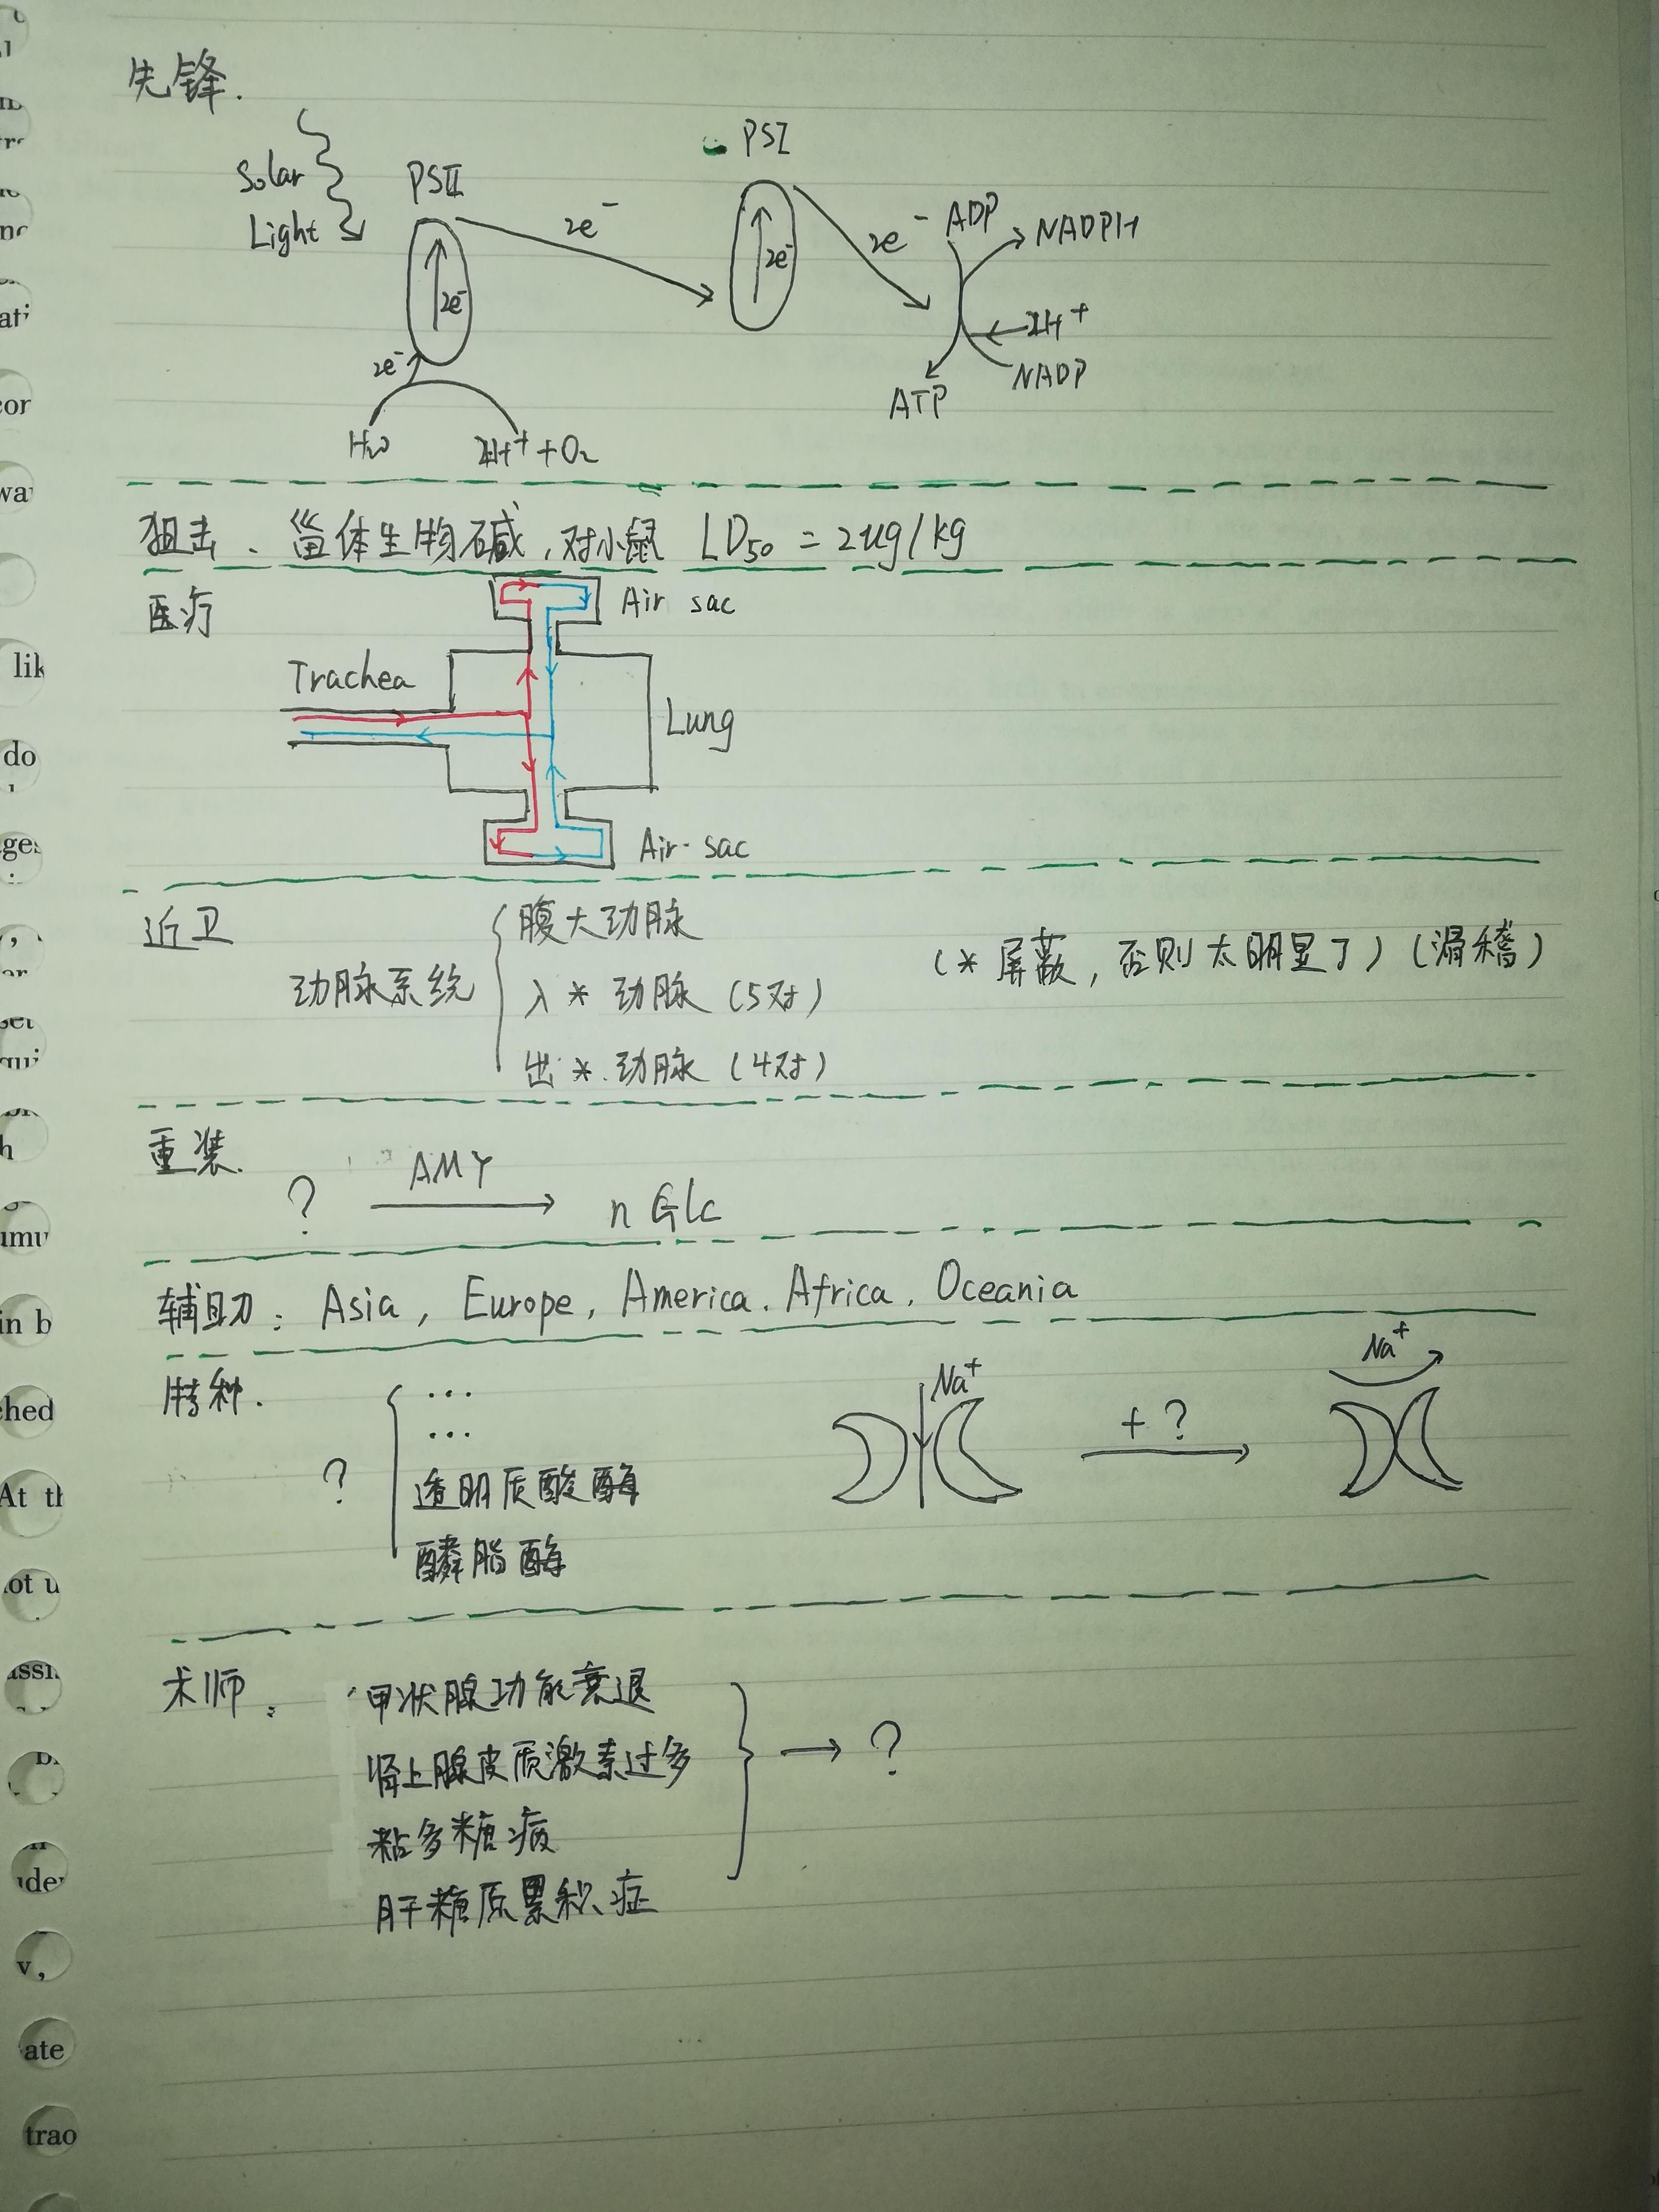 先锋.
Solar
Light
PSII
2e⁻
2e⁻
2e⁻
H₂O
2H⁺ + O₂
PSI
2e⁻
2e⁻
ADP
NADPH
2H⁺
NADP
ATP
狙击、甾体生物碱，对小鼠 LD₅₀ = 2ug/kg
医疗
Air sac
Trachea
Lung
Air-sac
近卫
动脉系统
腹大动脉
入*动脉（5对）
出*.动脉（4对）
（*屏蔽，否则太明显了）（滑稽）
重装.
? AMY n Glc
辅助： Asia, Europe, America. Africa. Oceania
特种.
?
...
...
透明质酸酶
磷脂酶
Na⁺
+ ?
Na⁺
术师：
甲状腺功能衰退
肾上腺皮质激素过多
粘多糖病
肝糖原累积症
?